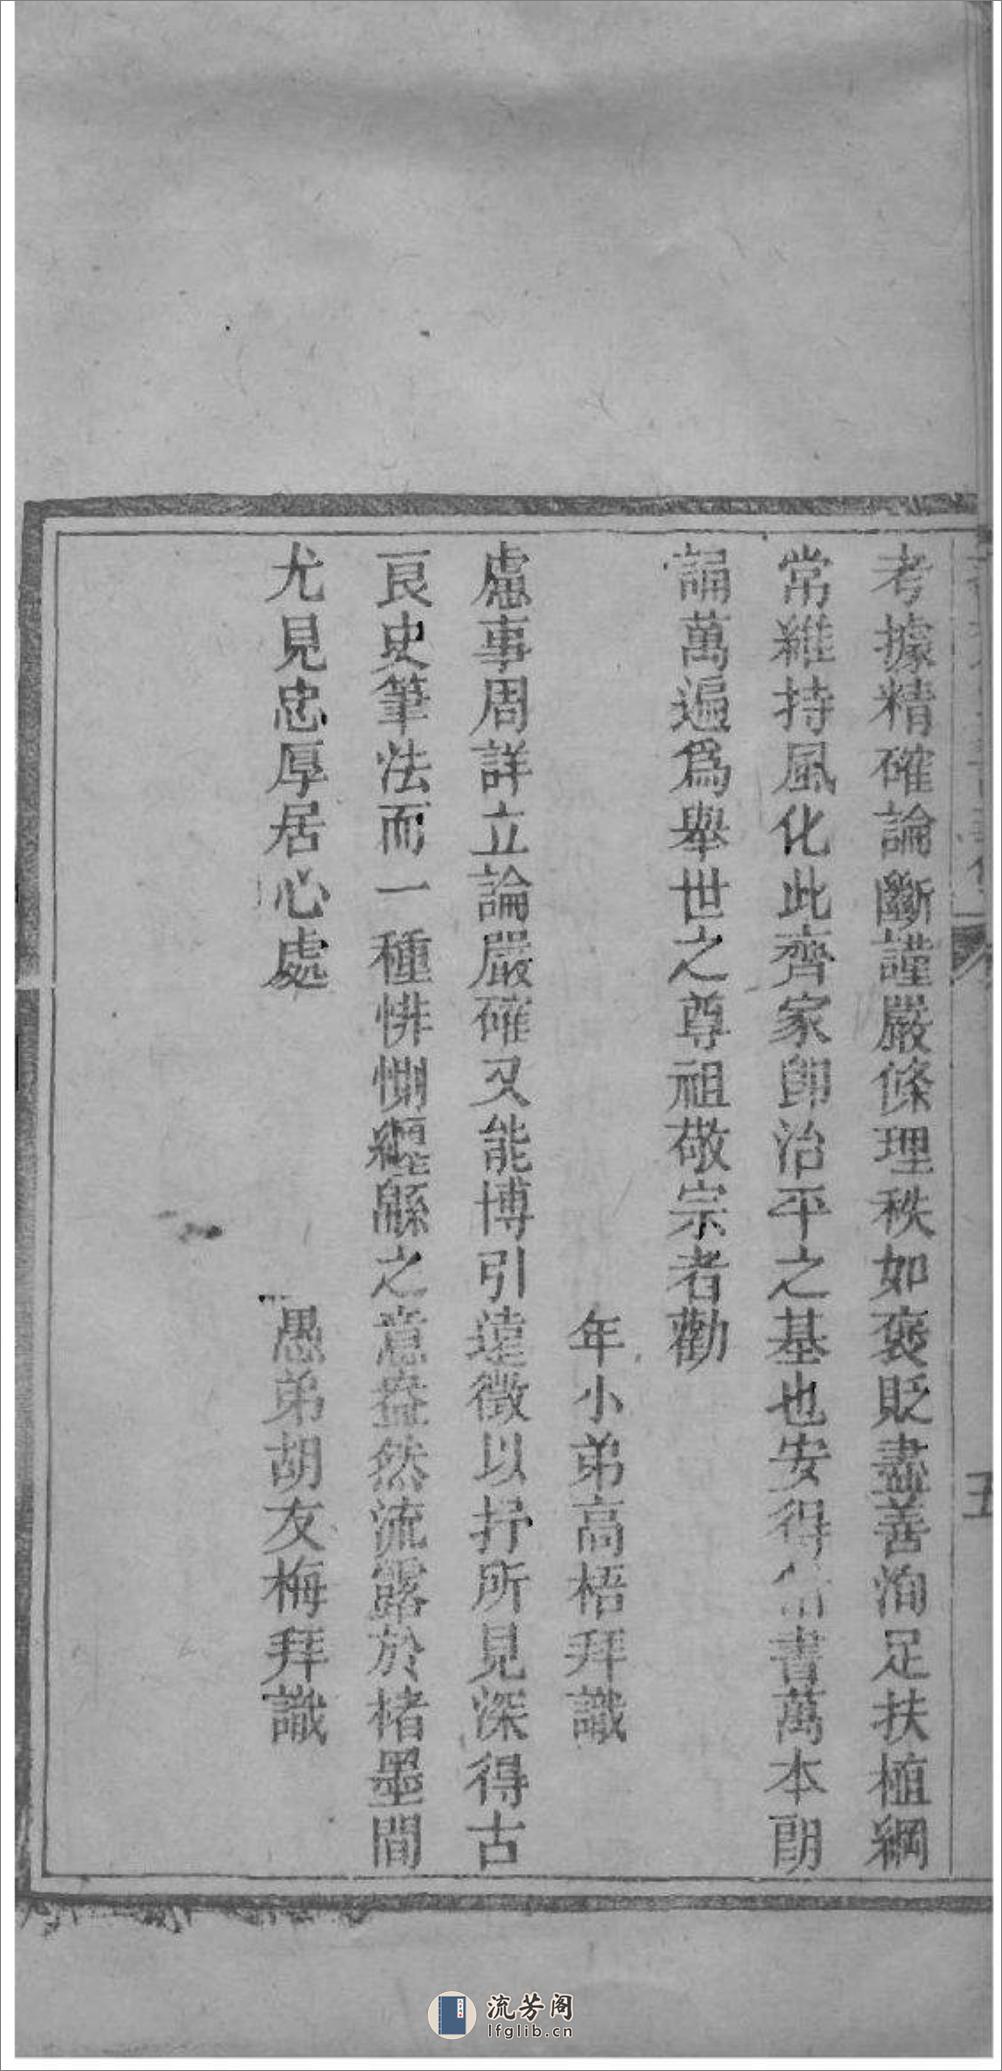 考據精確論斷謹嚴條理秩如褒貶盡善洵足扶植綱
常維持風化此齊家即治平之基也安得書萬本朗
誦萬遍爲舉世之尊祖敬宗者勸
年小弟高梧拜識
慮事周詳立論嚴確又能博引遠徵以抒所見深得古
良史筆法而一種悱惻纏緜之意盎然流露於楮墨間
尤見忠厚居心處
愚弟胡友梅拜識
五
流芳阁
lfglib.cn